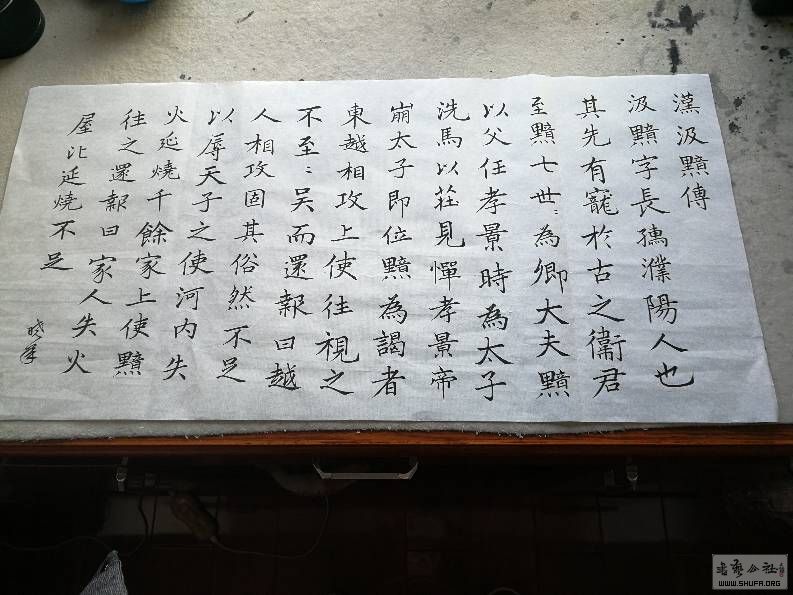 漢汲黯傳
汲黯字長孺濮陽人也
其先有寵於古之衞君
至黯七世〻為卿大夫黯
以父任孝景時為太子
洗馬以莊見憚孝景帝
崩太子即位黯為謁者
東越相攻上使往視之
不至〻吳而還報曰越
人相攻固其俗然不足
以辱天子之使河内失
火延燒千餘家上使黯
往之還報曰家人失火
屋比延燒不足
書法公社
WWW.SHUFA.ORG